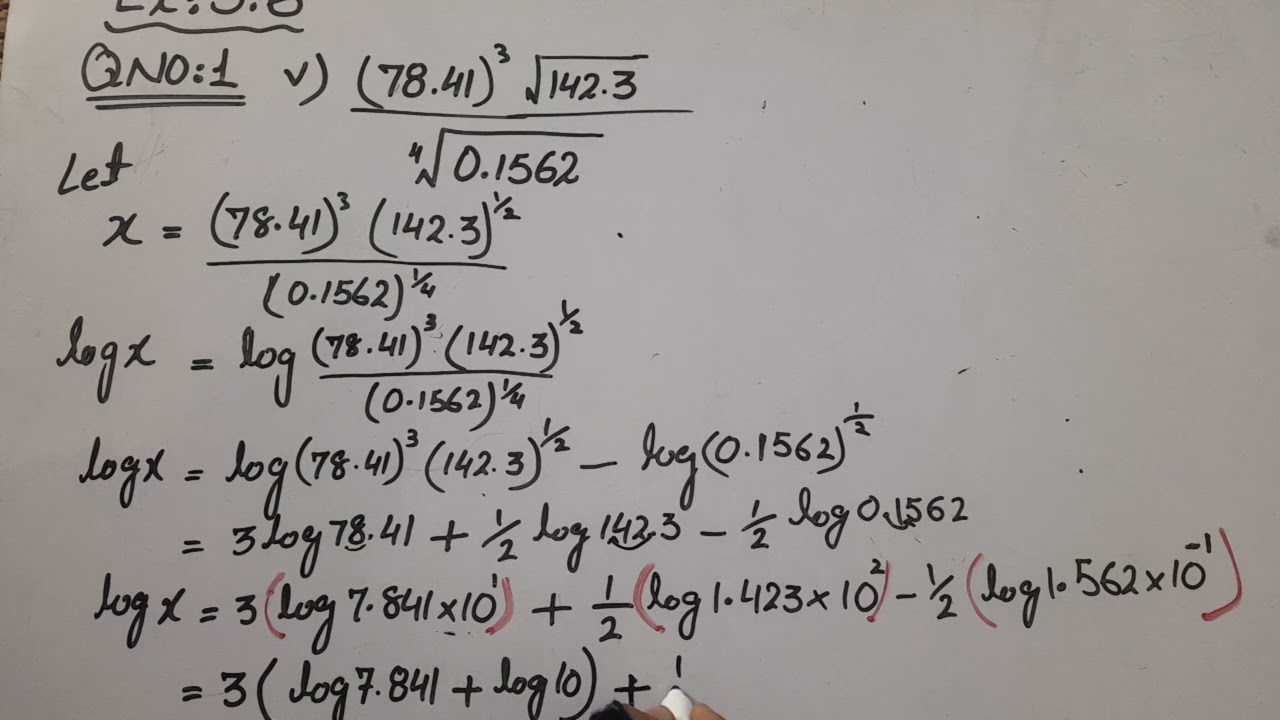 QNO:1 v) (78.41)³ √142.3 / ⁴√0.1562
Let
x = (78.41)³ (142.3)^½ / (0.1562)^¼
log x = log (78.41)³ (142.3)^½ / (0.1562)^¼
log x = log (78.41)³ (142.3)^½ - log (0.1562)^½
= 3 log 78.41 + ½ log 142.3 - ½ log 0.1562
log x = 3 (log 7.841 × 10¹) + ½ (log 1.423 × 10²) - ½ (log 1.562 × 10⁻¹)
= 3 ( log 7.841 + log 10) + 1